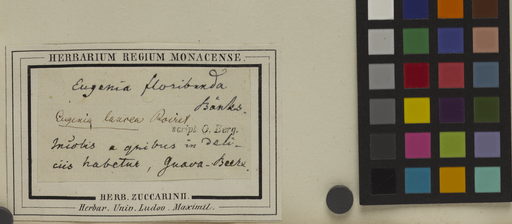 HERBARIUM REGIUM MONACENSE.
Eugenia floribunda
Banks.
Eugenia laurea Poiret
script. O. Berg.
a quibus in deli-
ciis habetur, Guava-Beere.
HERB. ZUCCARINII.
Herbar. Univ. Ludov. Maximil.